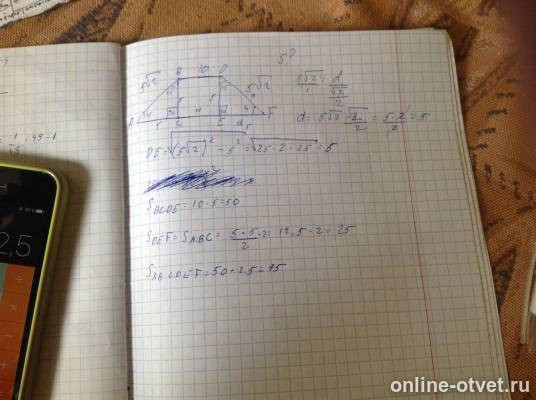 S?
B 10 D
5√2
5√2
A C E F
5√2/1 = d/(√2/2)
d = 5√2 · √2/2 = 5·2/2 = 5
DE = √(5√2)² - 5² = √25·2-25 = 5
S BCDE = 10·5=50
S DEF = S ABC = 5·5/2 · 2 12,5·2 = 25
S ABCDEF = 50+25=75
2,5
online-otvet.ru